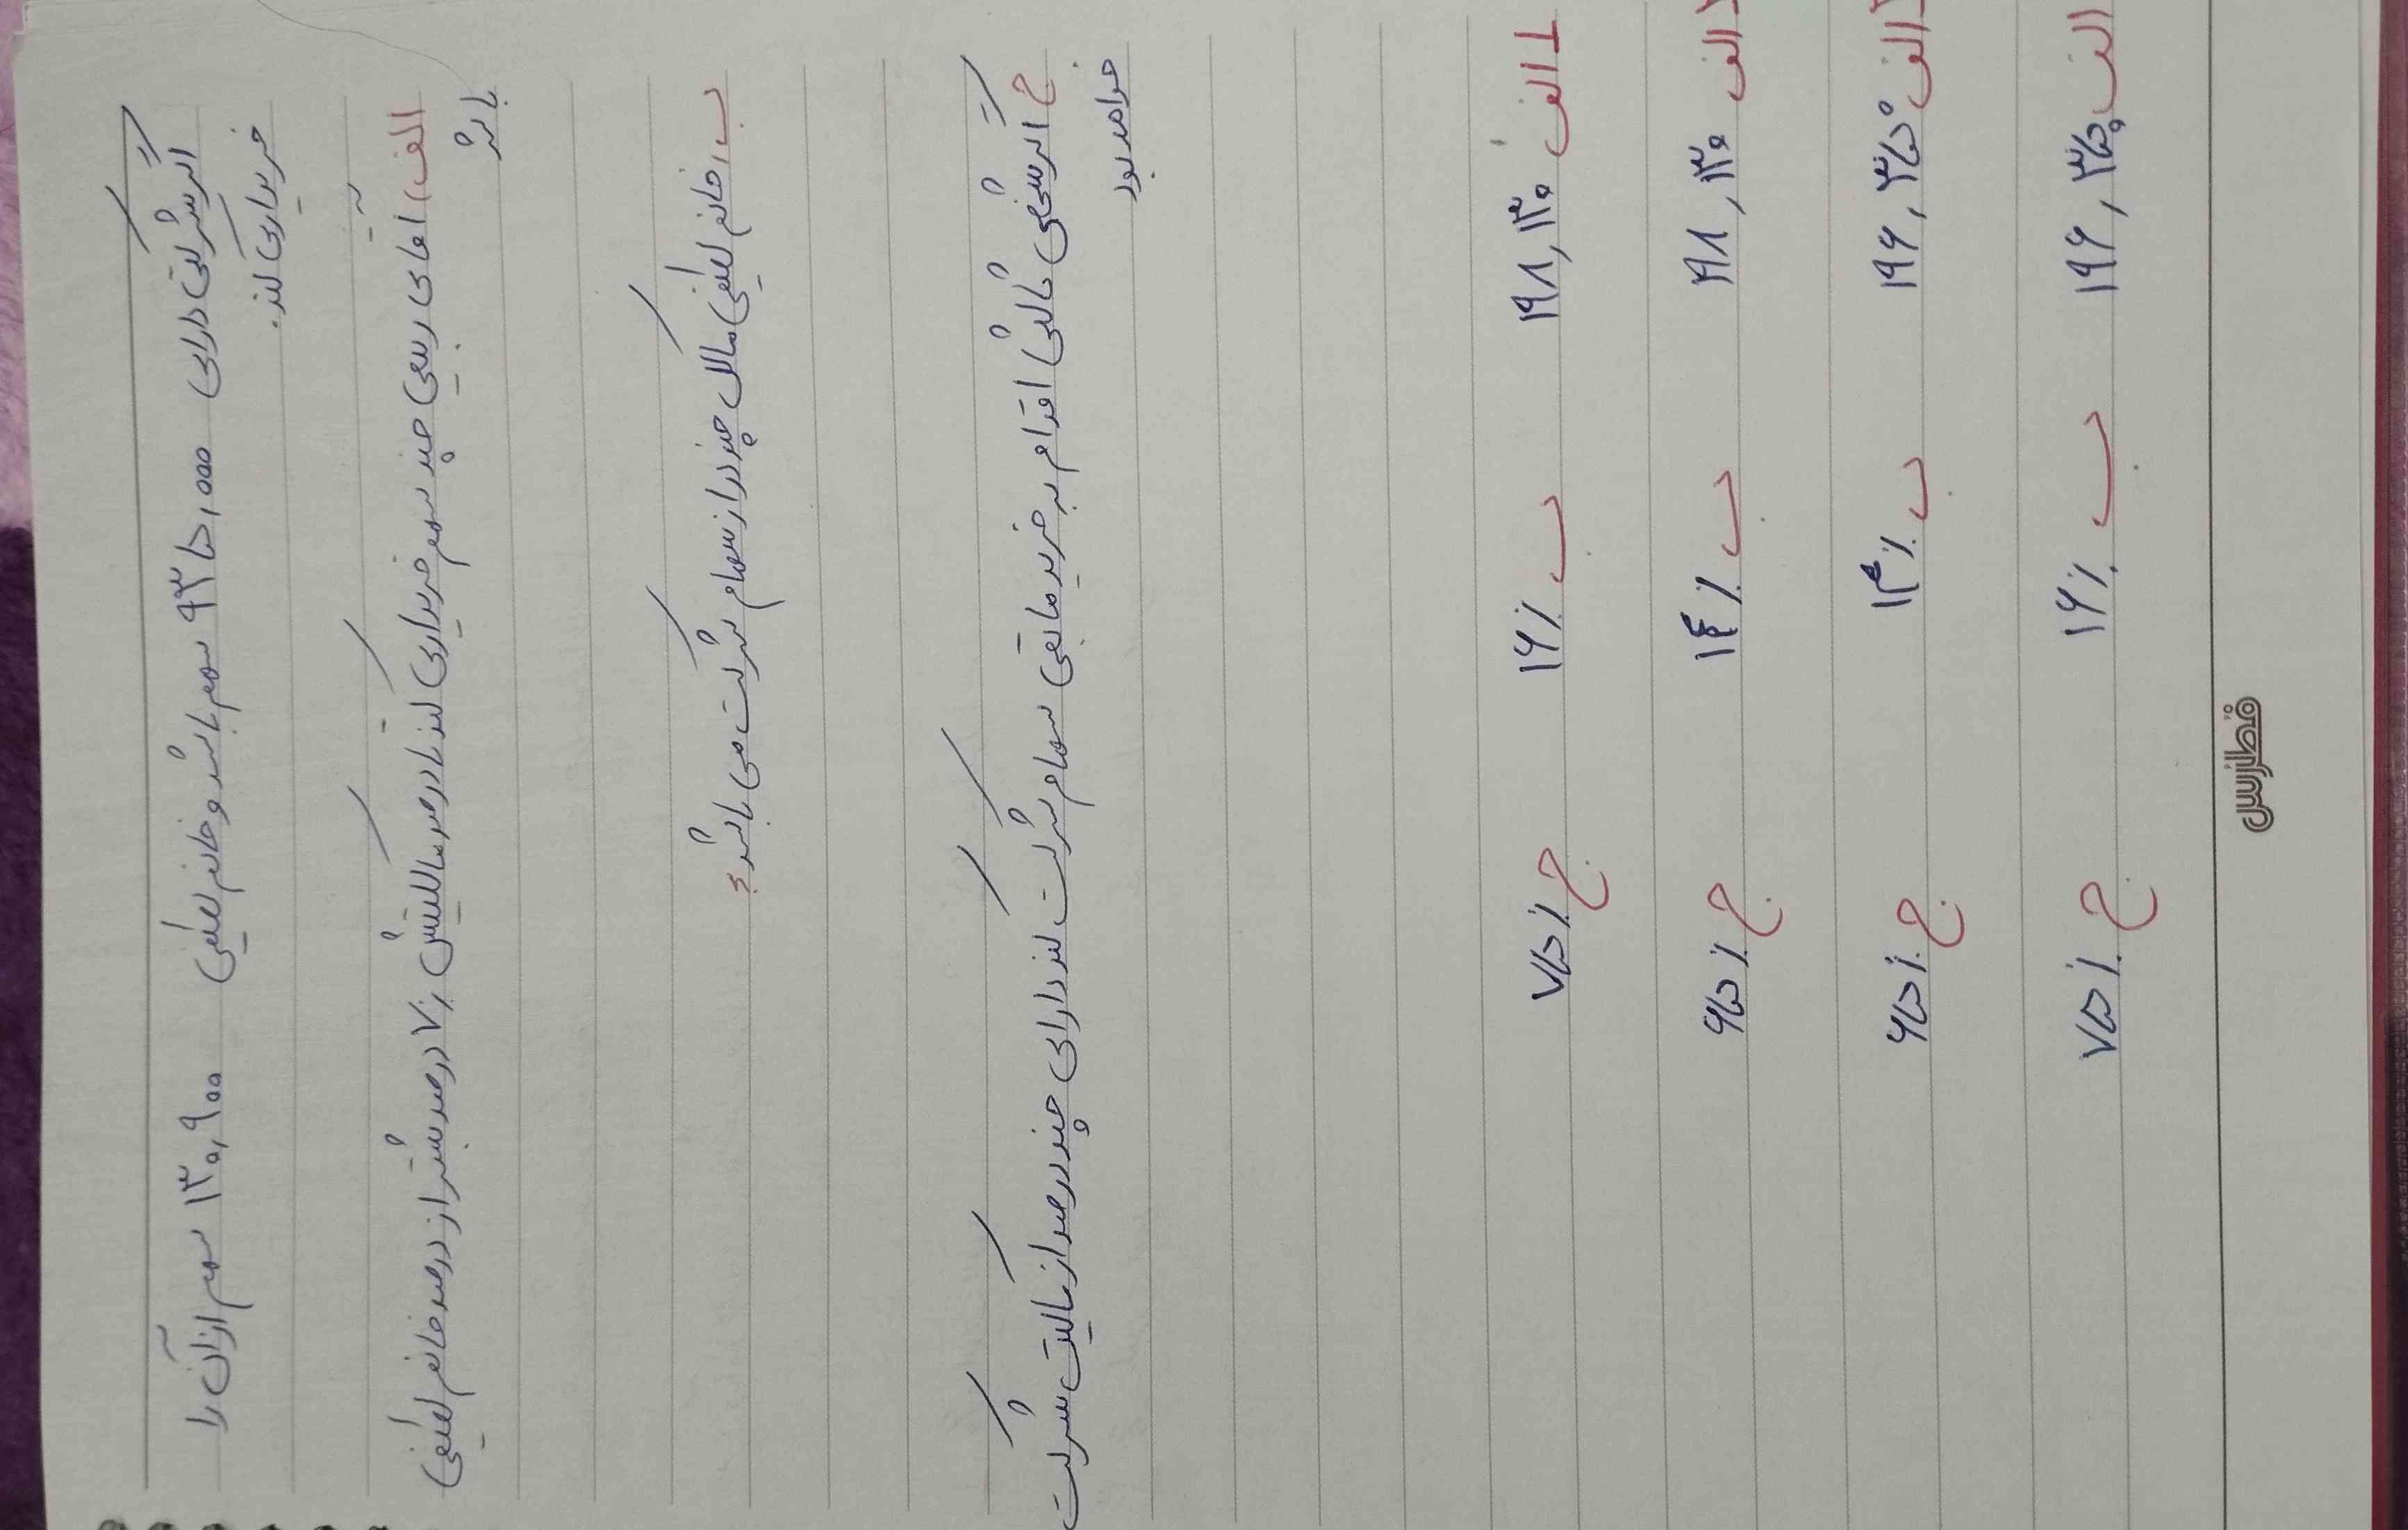 اگر شرکتی دارای ۹۳۵,۰۰۰ سهم باشد و خانم لطیفی ۱۳۰,۹۰۰ سهم از آن را
خریداری کند.
الف) آقای ربیعی چند سهم خریداری کند تا درصد مالکیتش ۷٪ درصد بیشتر از درصد خانم لطیفی
باشد
ب) خانم لطیفی مالک چند دراز سهام شرکت می باشد؟
ج اگر شخص ثالثی اقدام به خرید مابقی سهام شرکت کند دارای چند درصد از مالیت شرکت
خواهد بود
۱ الف ۱۹۸,۱۳۰ ب ۱۶٪ ج ۷۵٪
۲ الف ۱۹۸,۱۳۰ ب ۱۴٪ ج ۶۵٪
۳ الف ۱۹۶,۳۵۰ ب ۱۴٪ ج ۶۵٪
الف ۱۹۶,۳۵۰ ب ۱۶٪ ج ۷۵٪